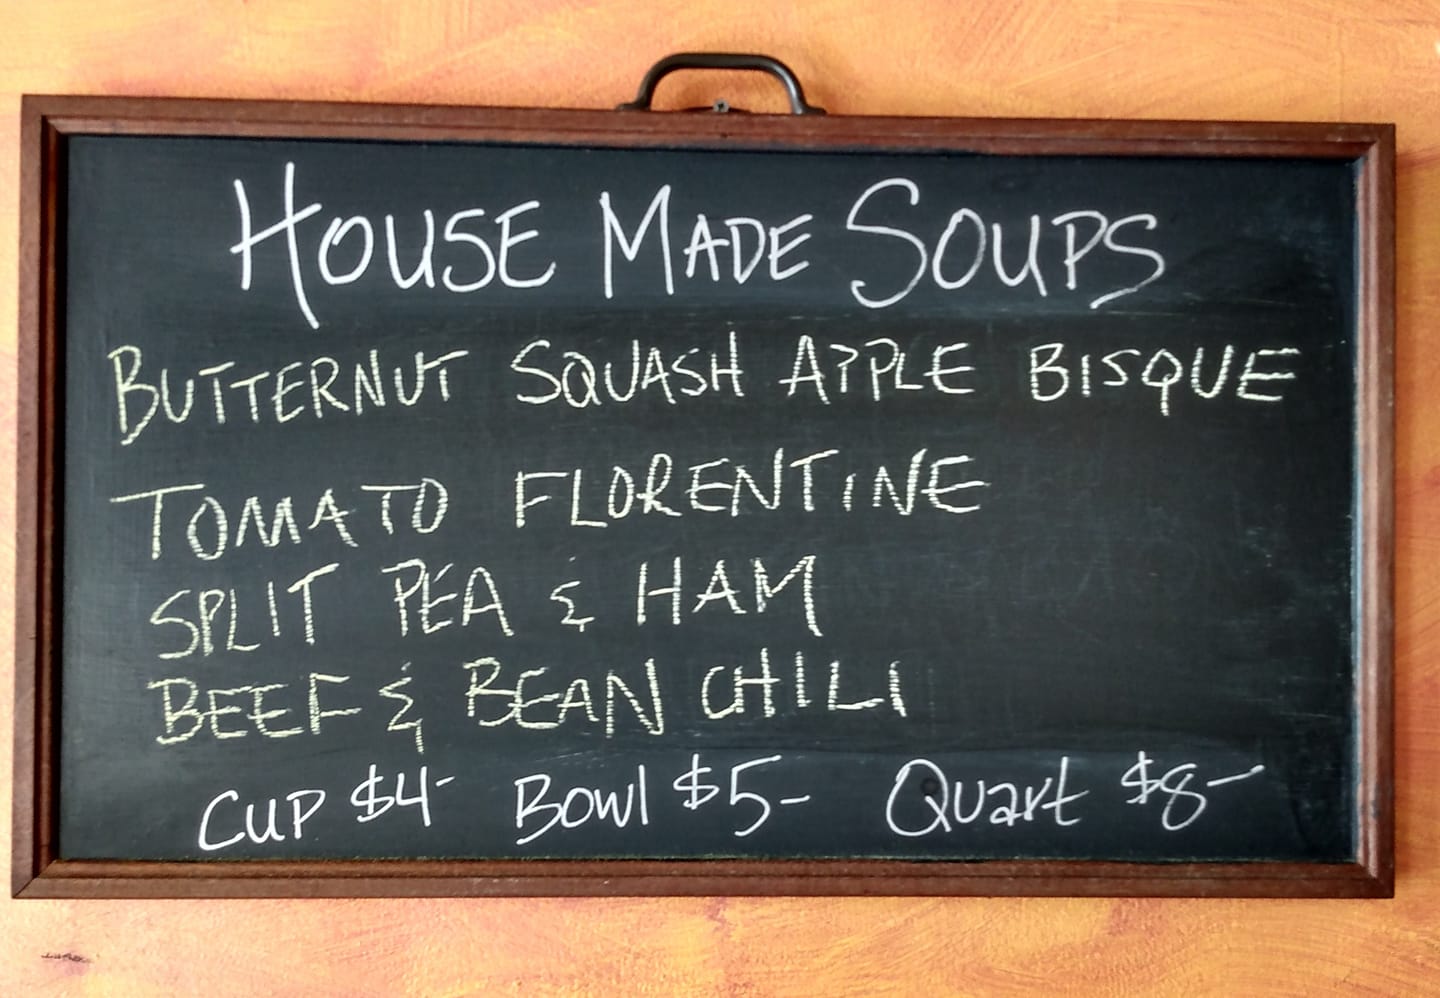 HOUSE MADE SOUPS
BUTTERNUT SQUASH APPLE BISQUE
TOMATO FLORENTINE
SPLIT PEA & HAM
BEEF & BEAN CHILI
CUP $4- Bowl $5- Quart $8-